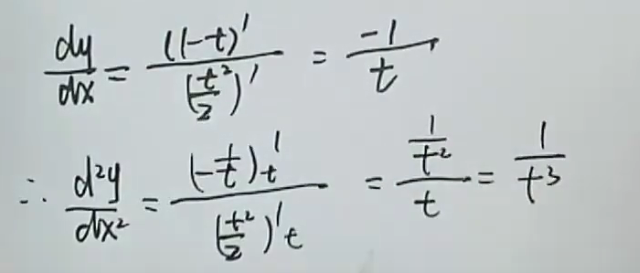 dy/dx = (1-t)' / (t²/2)' = -1/t
∴ d²y/dx² = (-1/t)'ₜ / (t²/2)'ₜ = (1/t²)/t = 1/t³